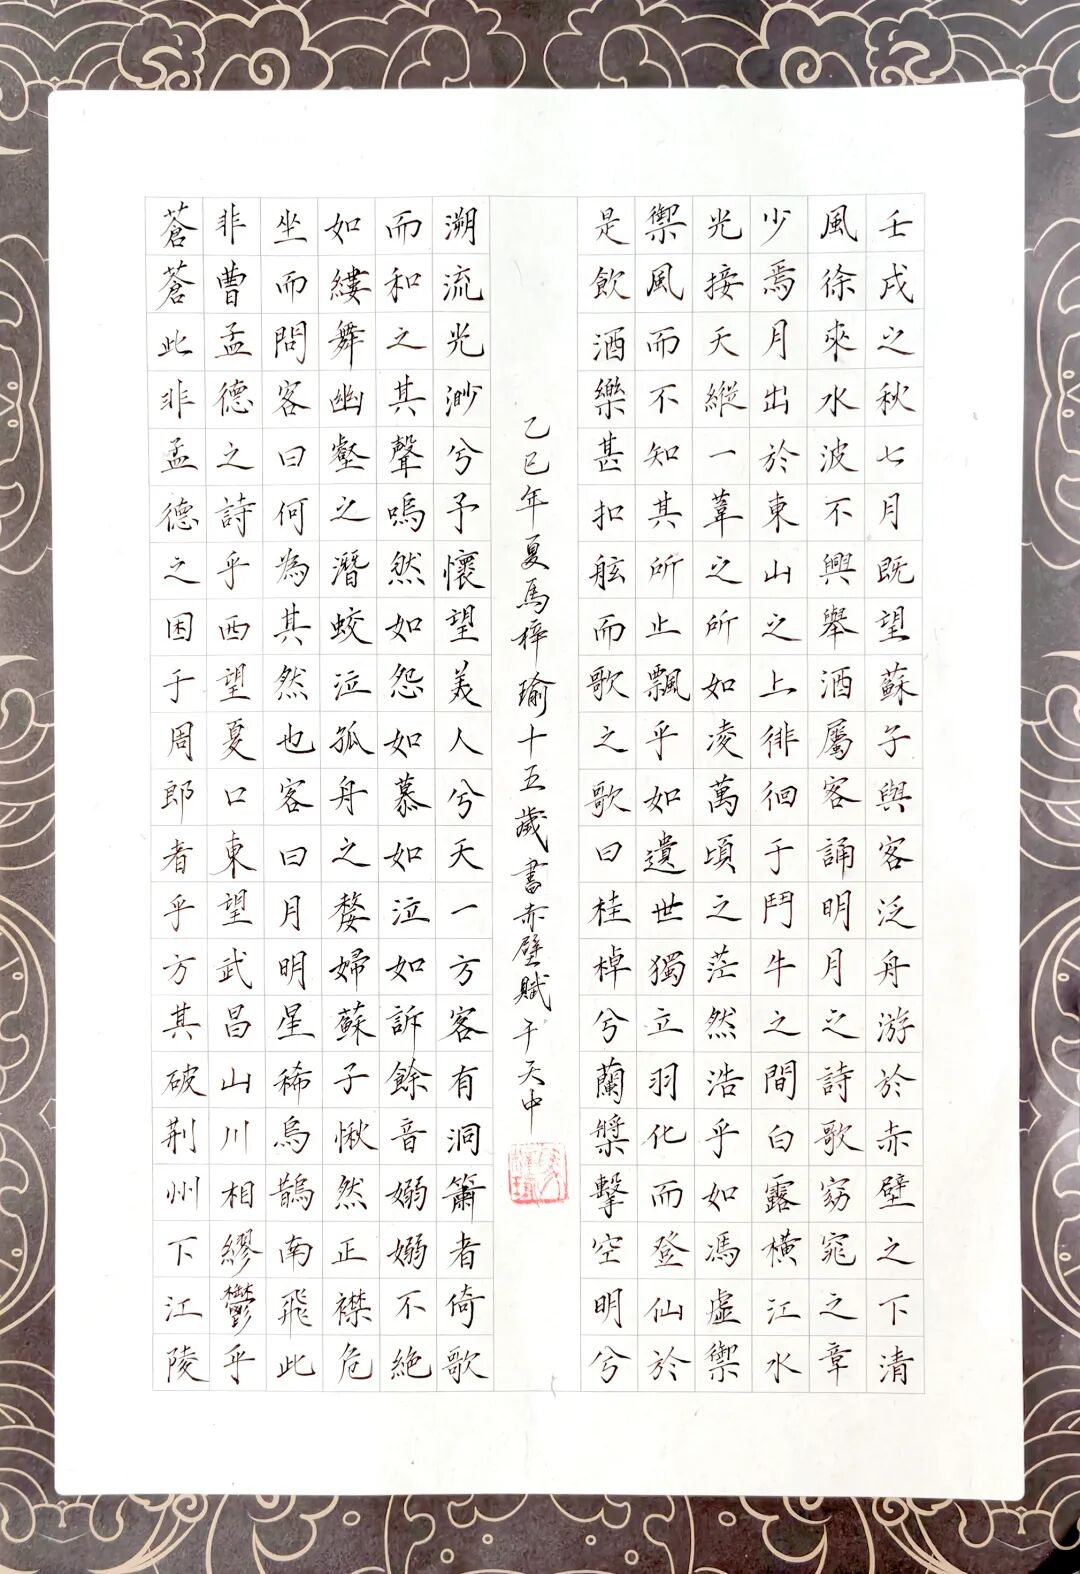 壬戌之秋七月既望蘇子與客泛舟游於赤壁之下清
風徐來水波不興舉酒屬客誦明月之詩歌窈窕之章
少焉月出於東山之上徘徊于鬥牛之間白露橫江水
光接天縱一葦之所如凌萬頃之茫然浩乎如馮虛禦
禦風而不知其所止飄乎如遺世獨立羽化而登仙於
是飲酒樂甚扣舷而歌之歌曰桂棹兮蘭槳擊空明兮
乙巳年夏馬梓瑜十五歲書赤壁賦于天中
溯流光渺兮予懷望美人兮天一方客有洞簫者倚歌
而和之其聲嗚然如怨如慕如泣如訴餘音嫋嫋不絕
如縷舞幽壑之潛蛟泣孤舟之嫠婦蘇子愀然正襟危
坐而問客曰何為其然也客曰月明星稀烏鵲南飛此
非曹孟德之詩乎西望夏口東望武昌山川相繆鬱乎
蒼蒼此非孟德之困于周郎者乎方其破荆州下江陵